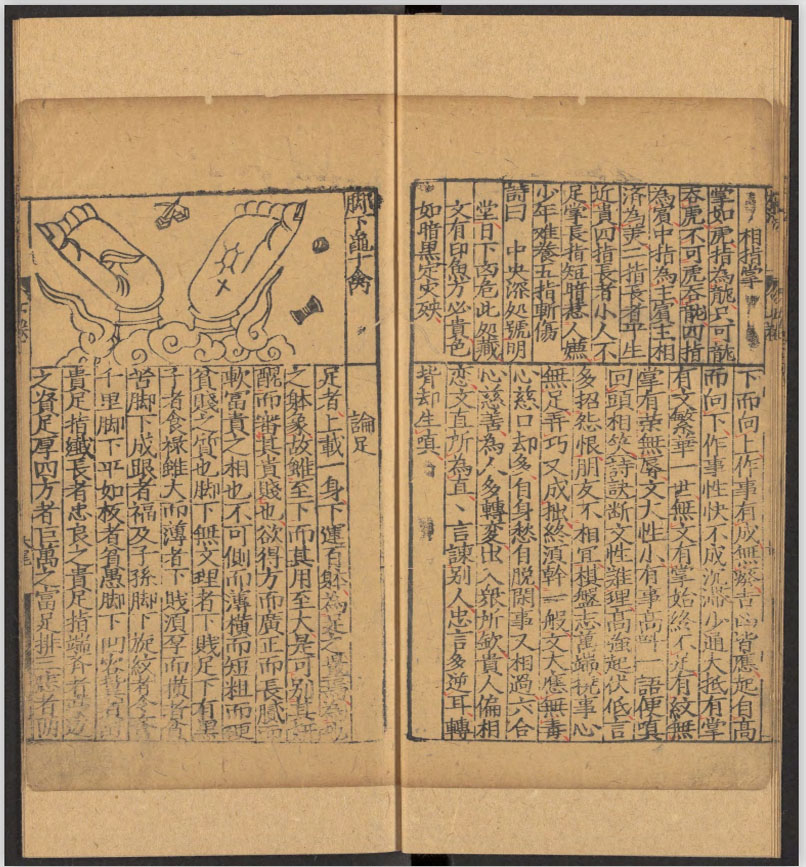 相指掌
掌如虎指為龍只可龍
吞虎不可虎吞龍四指
為賓中指為主賓主相
済為美二指長者平生
近貴四指長者小人不
足掌長指短暗惹人嫌
少年难養五指斬傷
詩曰 中央深処號明
堂日下凶危此処藏
文有印魚方必貴色
如暗黑定灾殃
下而向上作事有成無蹇吉凶皆應起自高
而向下作事性快不成沉滞少通大抵有掌
有文繁華一世無文有掌始終不足有紋無
掌有荣無辱文大性小有事高呌一語便嗔
回頭相笑詩訣断文性难理高強起伏低言
多招怨恨朋友不相冝棋盤志萬端挠事心
無足弄巧又成拙終湏幹一般文大應無毒
心慈口却多有自身愁自脱閑事又相過六合
心慈善為人多轉変出入衆所欽貴人偏相
恋文直所為直言諌别人忠言多逆耳轉
背却生嗔
脚下龜十禽
論足
足者上載一身下運百躰為足之
之躰象故雖至下而其用至大是可别其妍
醜而審其貴賤也欲得方而廣正而長膩而
軟富貴之相也不可側而薄横而短粗而硬
貧賤之质也脚下無文理者下賤足下有黑
子者食禄雖大而薄者下賤湏厚而橫者貧
苦脚下成跟者福及子孫脚下旋紋者令
千里脚下平如板者貧愚脚下凹容
貴足指纖長者忠良之貴足指端齐者
之資足厚四方者巨萬之富足排三者两